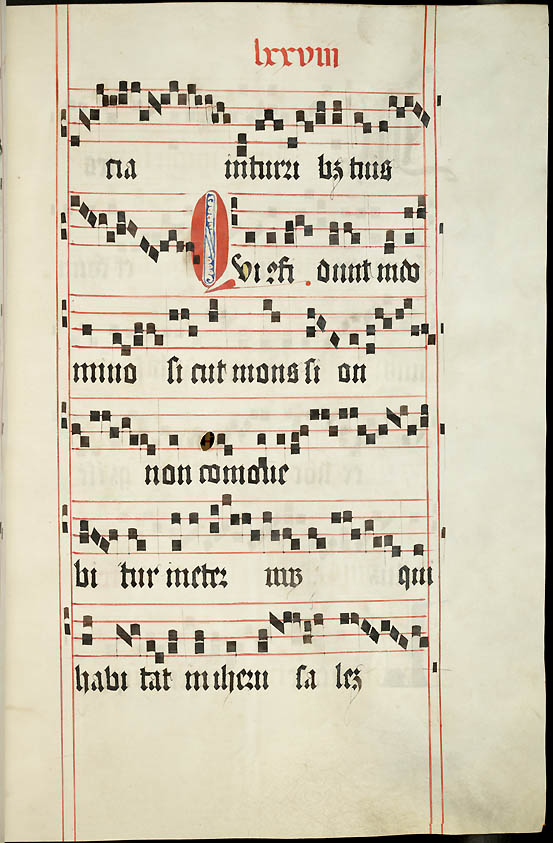 lxxviii
cia in turri bz tuis
Qui cōfi dunt in do
mino si cut mons si on
non comoue
bi tur in eter nuz qui
habi tat in iheru sa lez